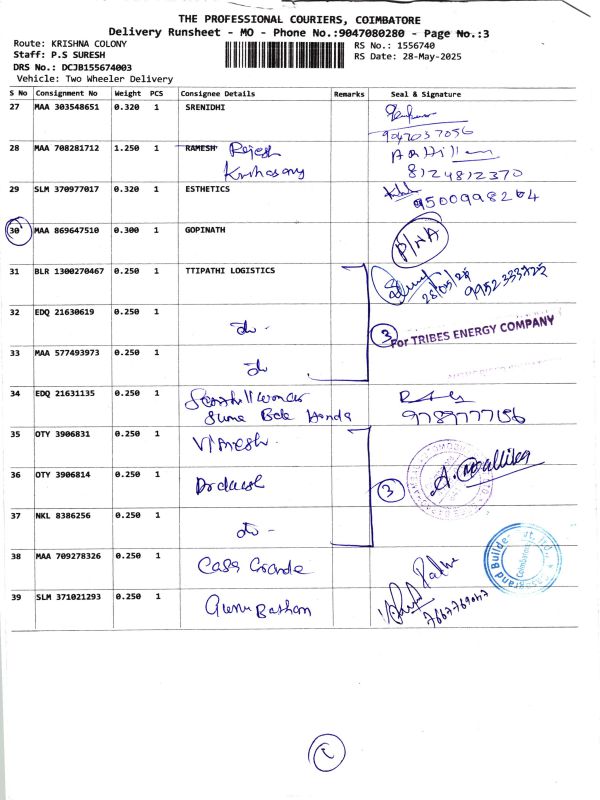 THE PROFESSIONAL COURIERS, COIMBATORE
Delivery Runsheet - MO - Phone No.:9047080280 - Page No.:3
Route: KRISHNA COLONY RS No.: 1556740
Staff: P.S SURESH RS Date: 28-May-2025
DRS No.: DCJB155674003
Vehicle: Two Wheeler Delivery
S No Consignment No Weight PCS Consignee Details Remarks Seal & Signature
27 MAA 303548651 0.320 1 SRENIDHI
9047037056
28 MAA 708281712 1.250 1 RAMESH Rajesh
8124812370
29 SLM 370977017 0.320 1 ESTHETICS
9500998264
30 MAA 869647510 0.300 1 GOPINATH P/NA
31 BLR 1300270467 0.250 1 TTIPATHI LOGISTICS
28/05/25 9952333725
32 EDQ 21630619 0.250 1 do -
3 For TRIBES ENERGY COMPANY
33 MAA 577493973 0.250 1 do
34 EDQ 21631135 0.250 1
Honda 9789777156
35 OTY 3906831 0.250 1
36 OTY 3906814 0.250 1
3 A. Mallika
37 NKL 8386256 0.250 1 do -
38 MAA 709278326 0.250 1 Casa Grande
39 SLM 371021293 0.250 1
7667769047